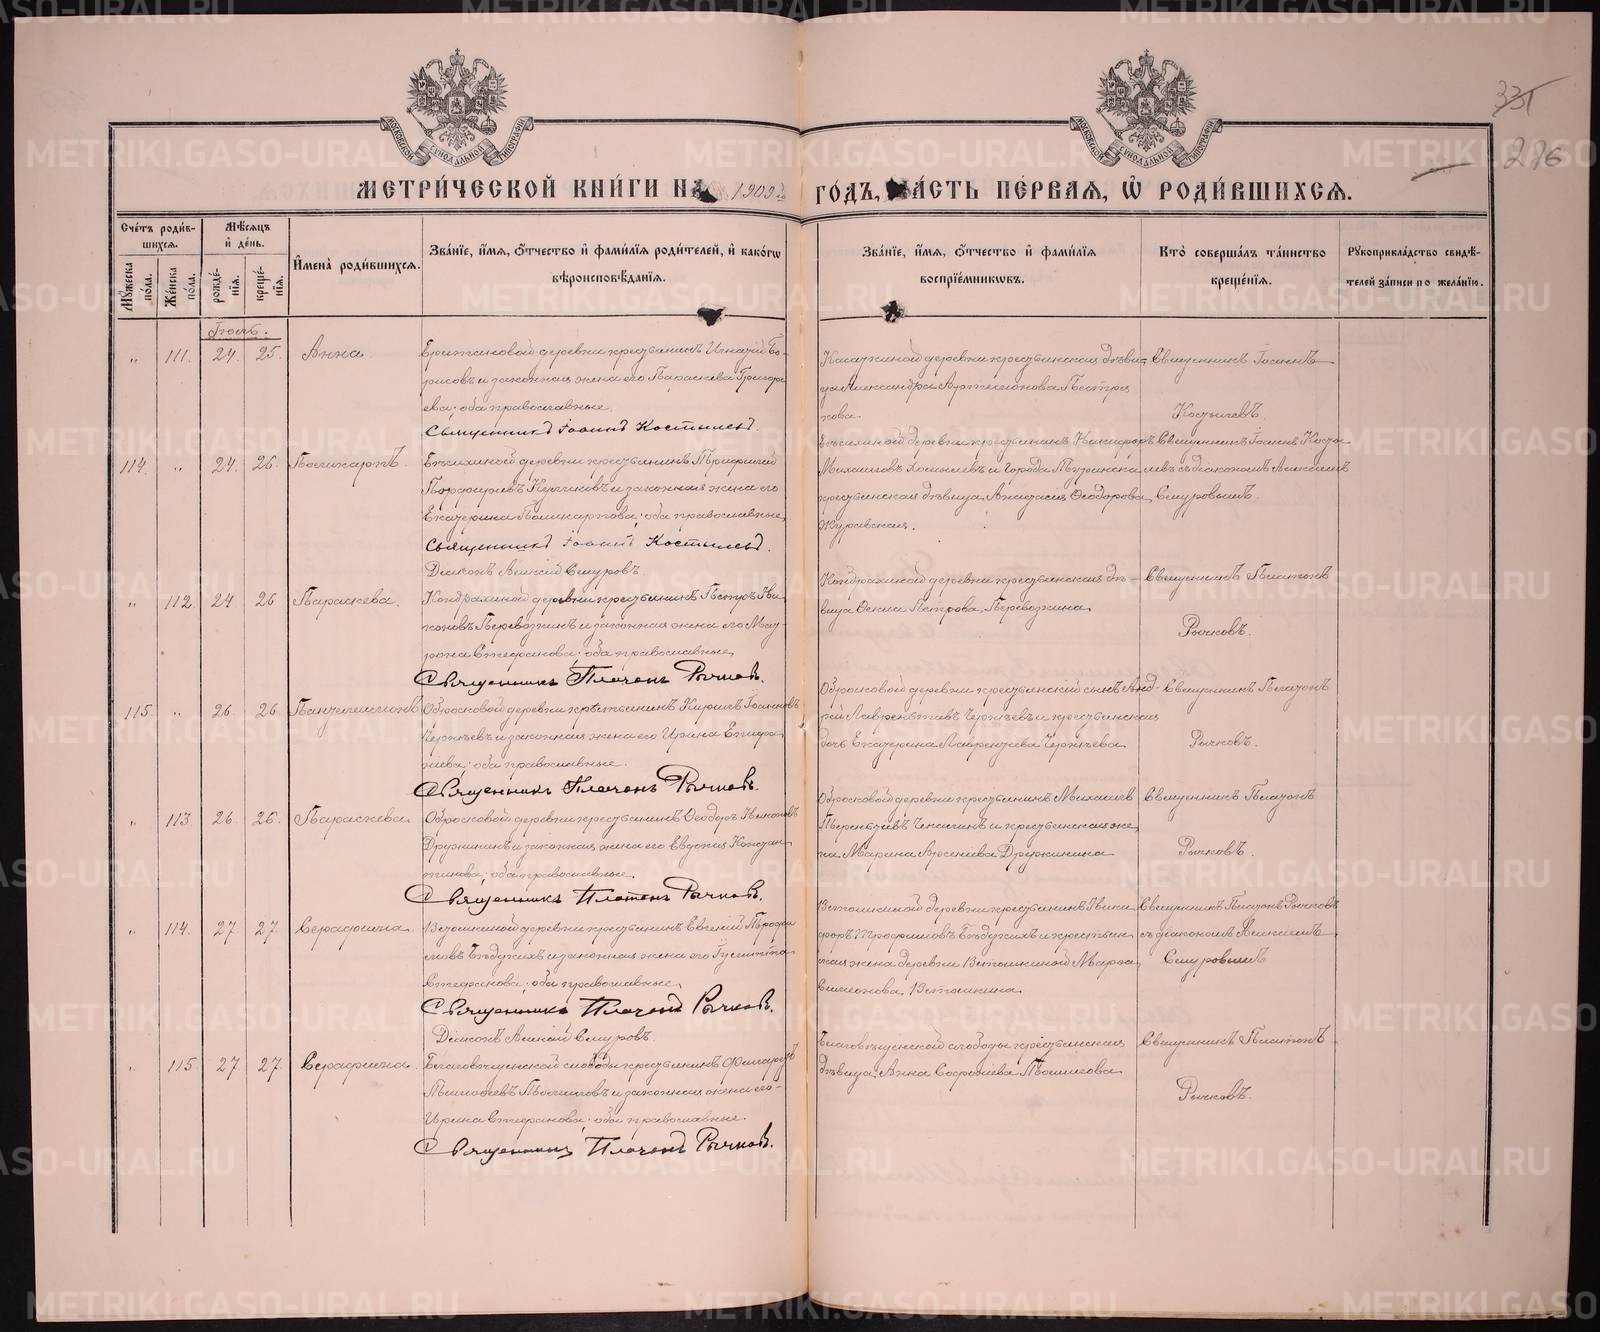 331
276
МЕТРИ́ЧЕСКОЙ КНИ́ГИ НА 1909 й ГО́ДЪ, ЧА́СТЬ ПЕ́РВАЯ, Ѽ РОДИ́ВШИХСѦ.
Сче́тъ роди́в-
шихсѧ.
Мѣ́сяцъ
и҆ де́нь.
Мꙋ́жеска по́ла.
Же́нска по́ла.
рожде́-
нїя.
креще́-
нїя.
И҆мена̀ роди́вшихсѧ.
Зва́нїе, и҆́мѧ, ѻ҆́тчество и҆ фами́лїѧ роди́телей, и҆ како́гѡ
вѣроисповѣ́данїѧ.
Зва́нїе, и҆́мѧ, ѻ҆́тчество и҆ фами́лїѧ
воспрїе́мникѡвъ.
Кто̀ соверша́лъ та́инство
креще́нїѧ.
Рꙋкоприкла́дство свидѣ́-
телей за́писи по жела́нїю.
Іюль.
„ 111. 24. 25. Анна
крестьянинъ Игнатій Бо-
рисовъ и законная жена его Параскева Григорь
ева; оба православные.
Священникъ Іоаннъ Костылевъ.
деревни крестьянская дѣви-
ца Александра Петро
кова
Священникъ Іоаннъ
Костылевъ.
114. „ 24. 26. Поликарпъ.
деревни крестьянинъ Трифилій
Порфирьевъ и законная жена его
Екатерина Поликарпова; оба православные
Священникъ Іоаннъ Костылевъ.
Діаконъ Алексій Смуровъ.
деревни крестьянинъ Никифоръ
Михаиловъ и города Туринска
крестьянская дѣвица Анастасія Ѳеодорова
Журавская.
Священникъ Іоаннъ Косты
левъ съ діакономъ Алексіемъ
Смуровымъ.
„ 112. 24 26 Параскева.
Кондрахиной деревни крестьянинъ Петръ Ни
коновъ Перевозкинъ и законная жена его Мат-
рона Стефанова; оба православные
Священникъ Платонъ Рычковъ.
Кондрахиной деревни крестьянская дѣ-
вица Ѳекла Петрова Перевозкина
Священникъ Платонъ
Рычковъ.
115 „ 26. 26 Пантелеимонъ
Обросковой деревни крестьянинъ Кириллъ Іоанновъ
Чернѣевъ и законная жена его Ирина Епифа
нiева; оба православные.
Священникъ Платонъ Рычковъ.
Обросковой деревни крестьянскій сынъ Анд-
рей Лаврентіевъ Чернѣевъ и крестьянская
дочь Екатерина Лаврентіева Чернѣева
Священникъ Платонъ
Рычковъ.
„ 113. 26. 26. Параскева.
Обросковой деревни крестьянинъ Ѳеодоръ Никоновъ
Дружининъ и законная жена его Евдокія Констан
тинова; оба православные
Священникъ Платонъ Рычковъ.
Обросковой деревни крестьянинъ Михаилъ
Терентьевъ и крестьянская же
на Марина Арсеніева Дружинина
Священникъ Платонъ
Рычковъ.
„ 114. 27 27 Серафима.
деревни крестьянинъ Евгеній Трофи
мовъ и законная жена его
Стефанова; оба православные
Священникъ Платонъ Рычковъ.
Діаконъ Алексій Смуровъ.
деревни крестьянинъ Ники
форъ Трофимовъ и крестьян
ская жена деревни Марѳа
Симеонова
Священникъ Платонъ Рычковъ
съ діакономъ Алексіемъ
Смуровымъ
„ 115 27 27. Серафима.
Благовѣщенской слободы крестьянинъ
и законная жена его
Ирина Стефанова; оба православные.
Священникъ Платонъ Рычковъ.
Благовѣщенской слободы крестьянская
дѣвица Анна Софоніева
Священникъ Платонъ
Рычковъ.
METRIKI.GASO-URAL.RU